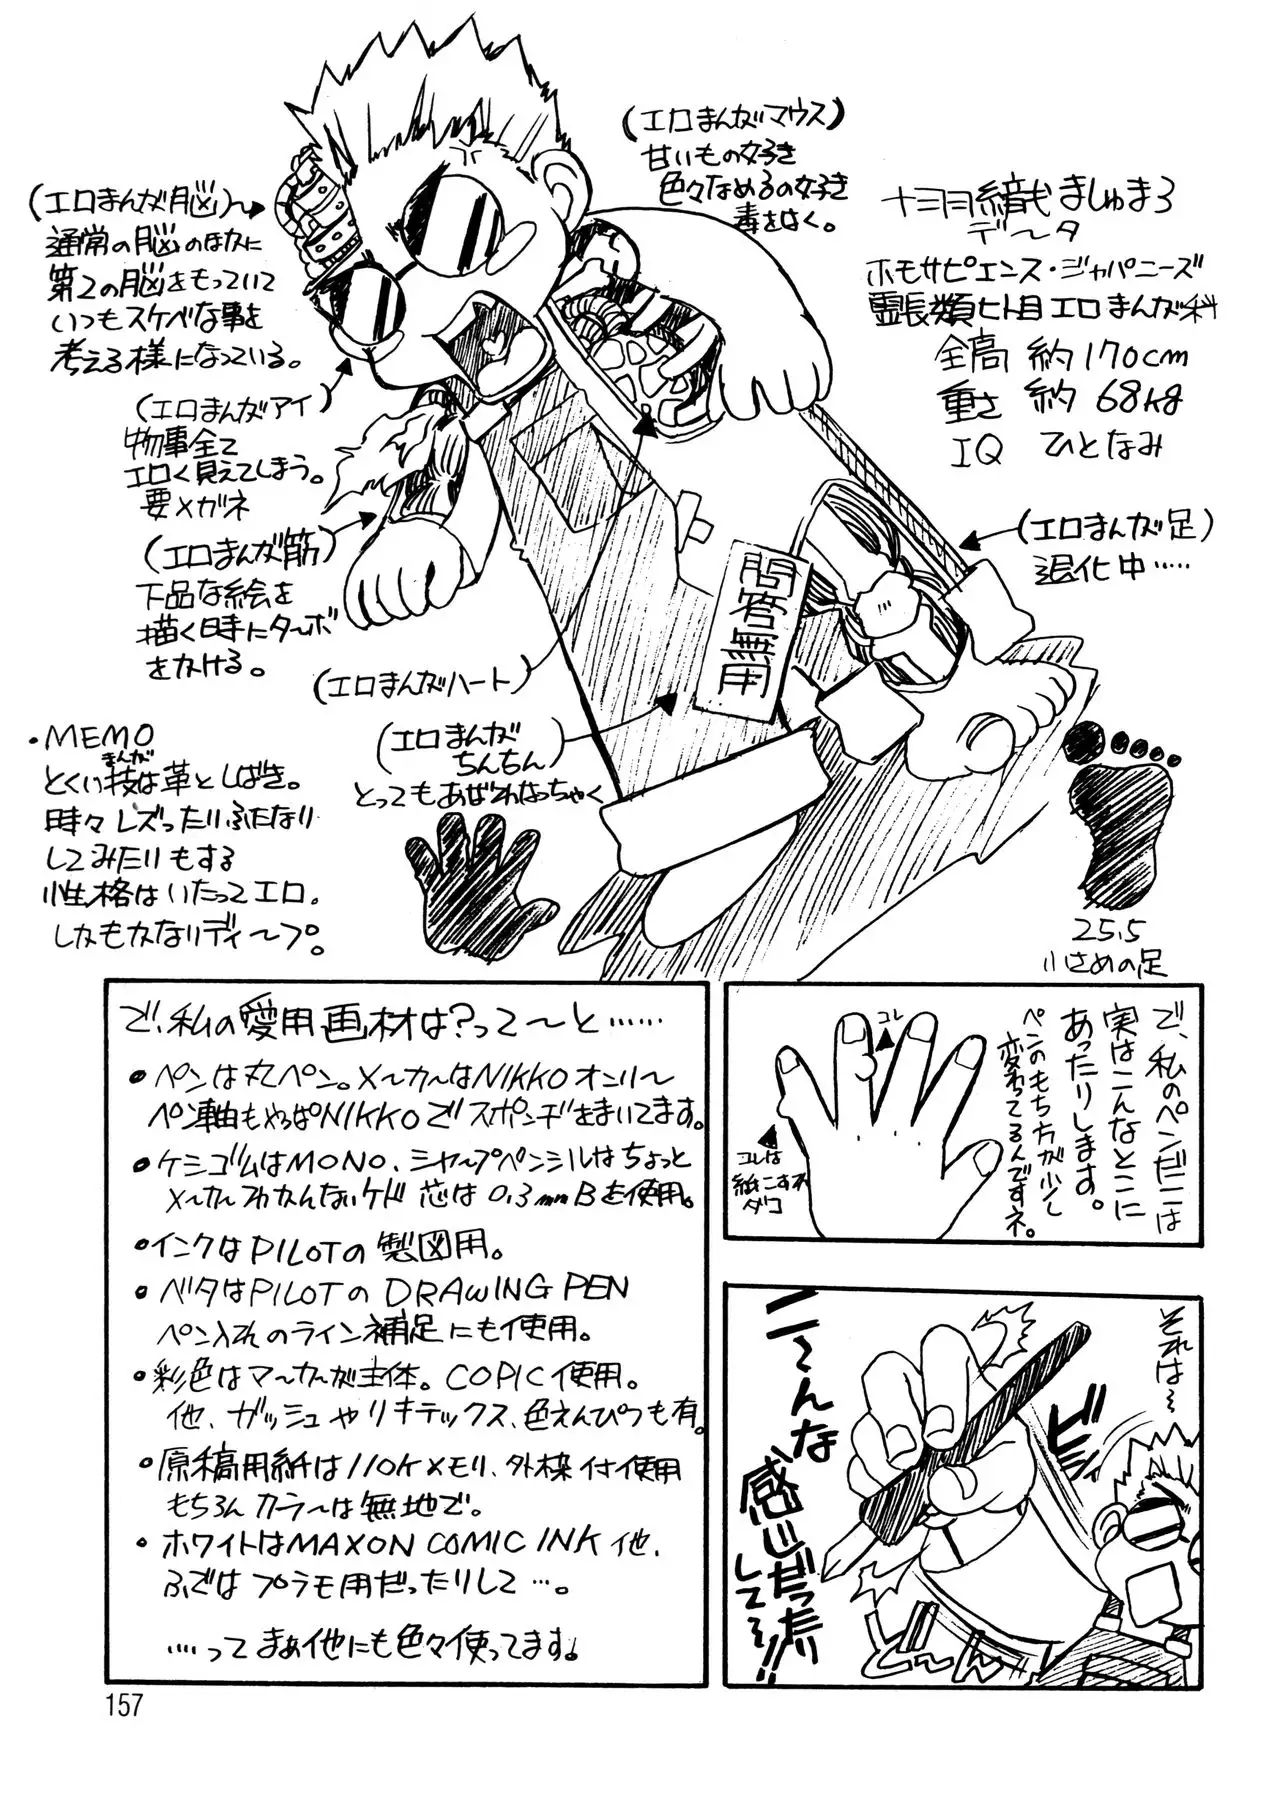 (エロまんがマウス)
甘いもの好き
色々なめるの好き
毒をはく。
ましゅまろ
デ〜タ
ホモサピエンス・ジャパニーズ
霊長類ヒト目エロまんが科
全高 約170cm
重さ 約68kg
IQ ひとなみ
(エロまんが脳)〜
通常の脳のほかに
第2の脳をもっていて
いつもスケベな事を
考える様になっている。
(エロまんがアイ)
物事全て
エロく見えてしまう。
要メガネ
(エロまんが筋)
下品な絵を
描く時にターボ
をかける。
(エロまんがハート)
(エロまんが
ちんちん)
とってもあばれなっちゃく
問答無用
(エロまんが足)
退化中……
・MEMO
まんが
とくい技は革としばき。
時々レズったりふたなり
してみたりもする
性格はいたってエロ。
しかもかなりディ〜プ。
25.5
小さめの足
で、私の愛用画材は?って〜と……
●ペンは丸ペン。メ〜カ〜はNIKKOオンリ〜
ペン軸もやっぱNIKKOでスポンヂをまいてます。
●ケシゴムはMONO、シャ〜プペンシルはちょっと
メ〜カ〜わかんないケド 芯は0.3mmBを使用。
●インクはPILOTの製図用。
●ベタはPILOTのDRAWING PEN
ペン入れのライン補足にも使用。
●彩色はマ〜カ〜が主体。COPIC使用。
他、ガッシュやリキテックス、色えんぴつも有。
●原稿用紙は110Kメモリ、外枠付使用
もちろんカラ〜は無地で。
●ホワイトはMAXON COMIC INK他、
ふではプラモ用だったりして…。
……ってまぁ他にも色々使ってます。
で、私のペンだこは
実はこんなとこに
あったりします。
ペンのもち方が少し
変わってるんですネ。
コレ
コレは
紙こすれ
ダコ
それは〜
ビシ
ニ〜んな
感じだったり
してる!!
どーん
157